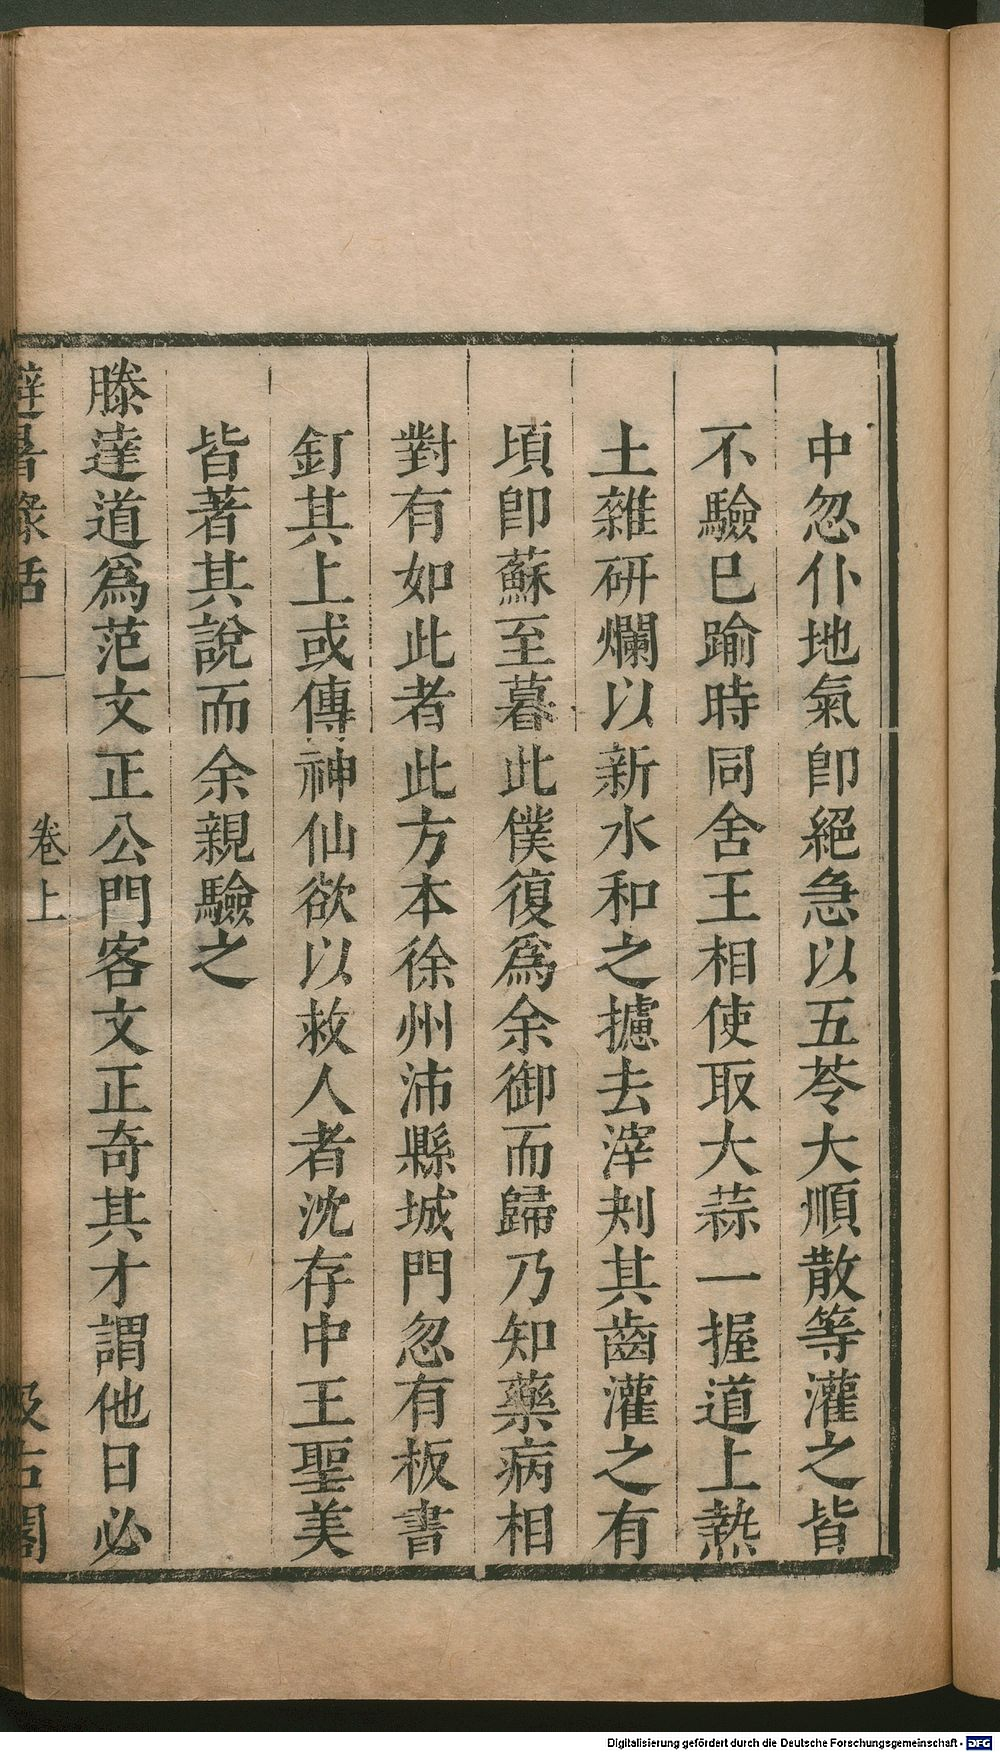 中忽仆地氣卽絕急以五苓大順散等灌之皆
不驗已踰時同舍王相使取大蒜一握道上熱
土雜研爛以新水和之攄去滓刔其齒灌之有
頃卽蘇至暮此僕復爲余御而歸乃知藥病相
對有如此者此方本徐州沛縣城門忽有板書
釘其上或傳神仙欲以救人者沈存中王聖美
皆著其說而余親驗之
滕達道爲范文正公門客文正奇其才謂他日必
避暑錄話
卷上
汲古閣
Digitalisierung gefördert durch die Deutsche Forschungsgemeinschaft - DFG